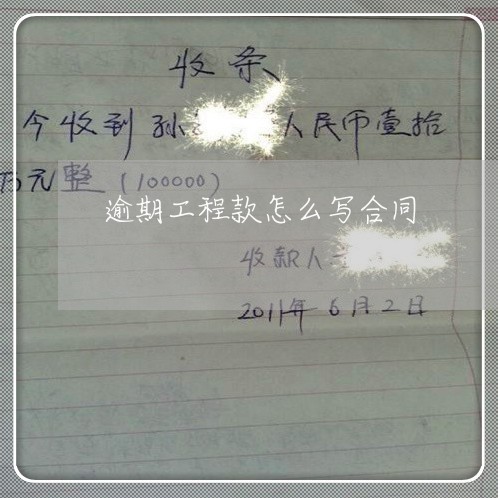 收条
今收到孙 人民币壹拾
万元整(100000)
逾期工程款怎么写合同
收款人
2011年6月2日